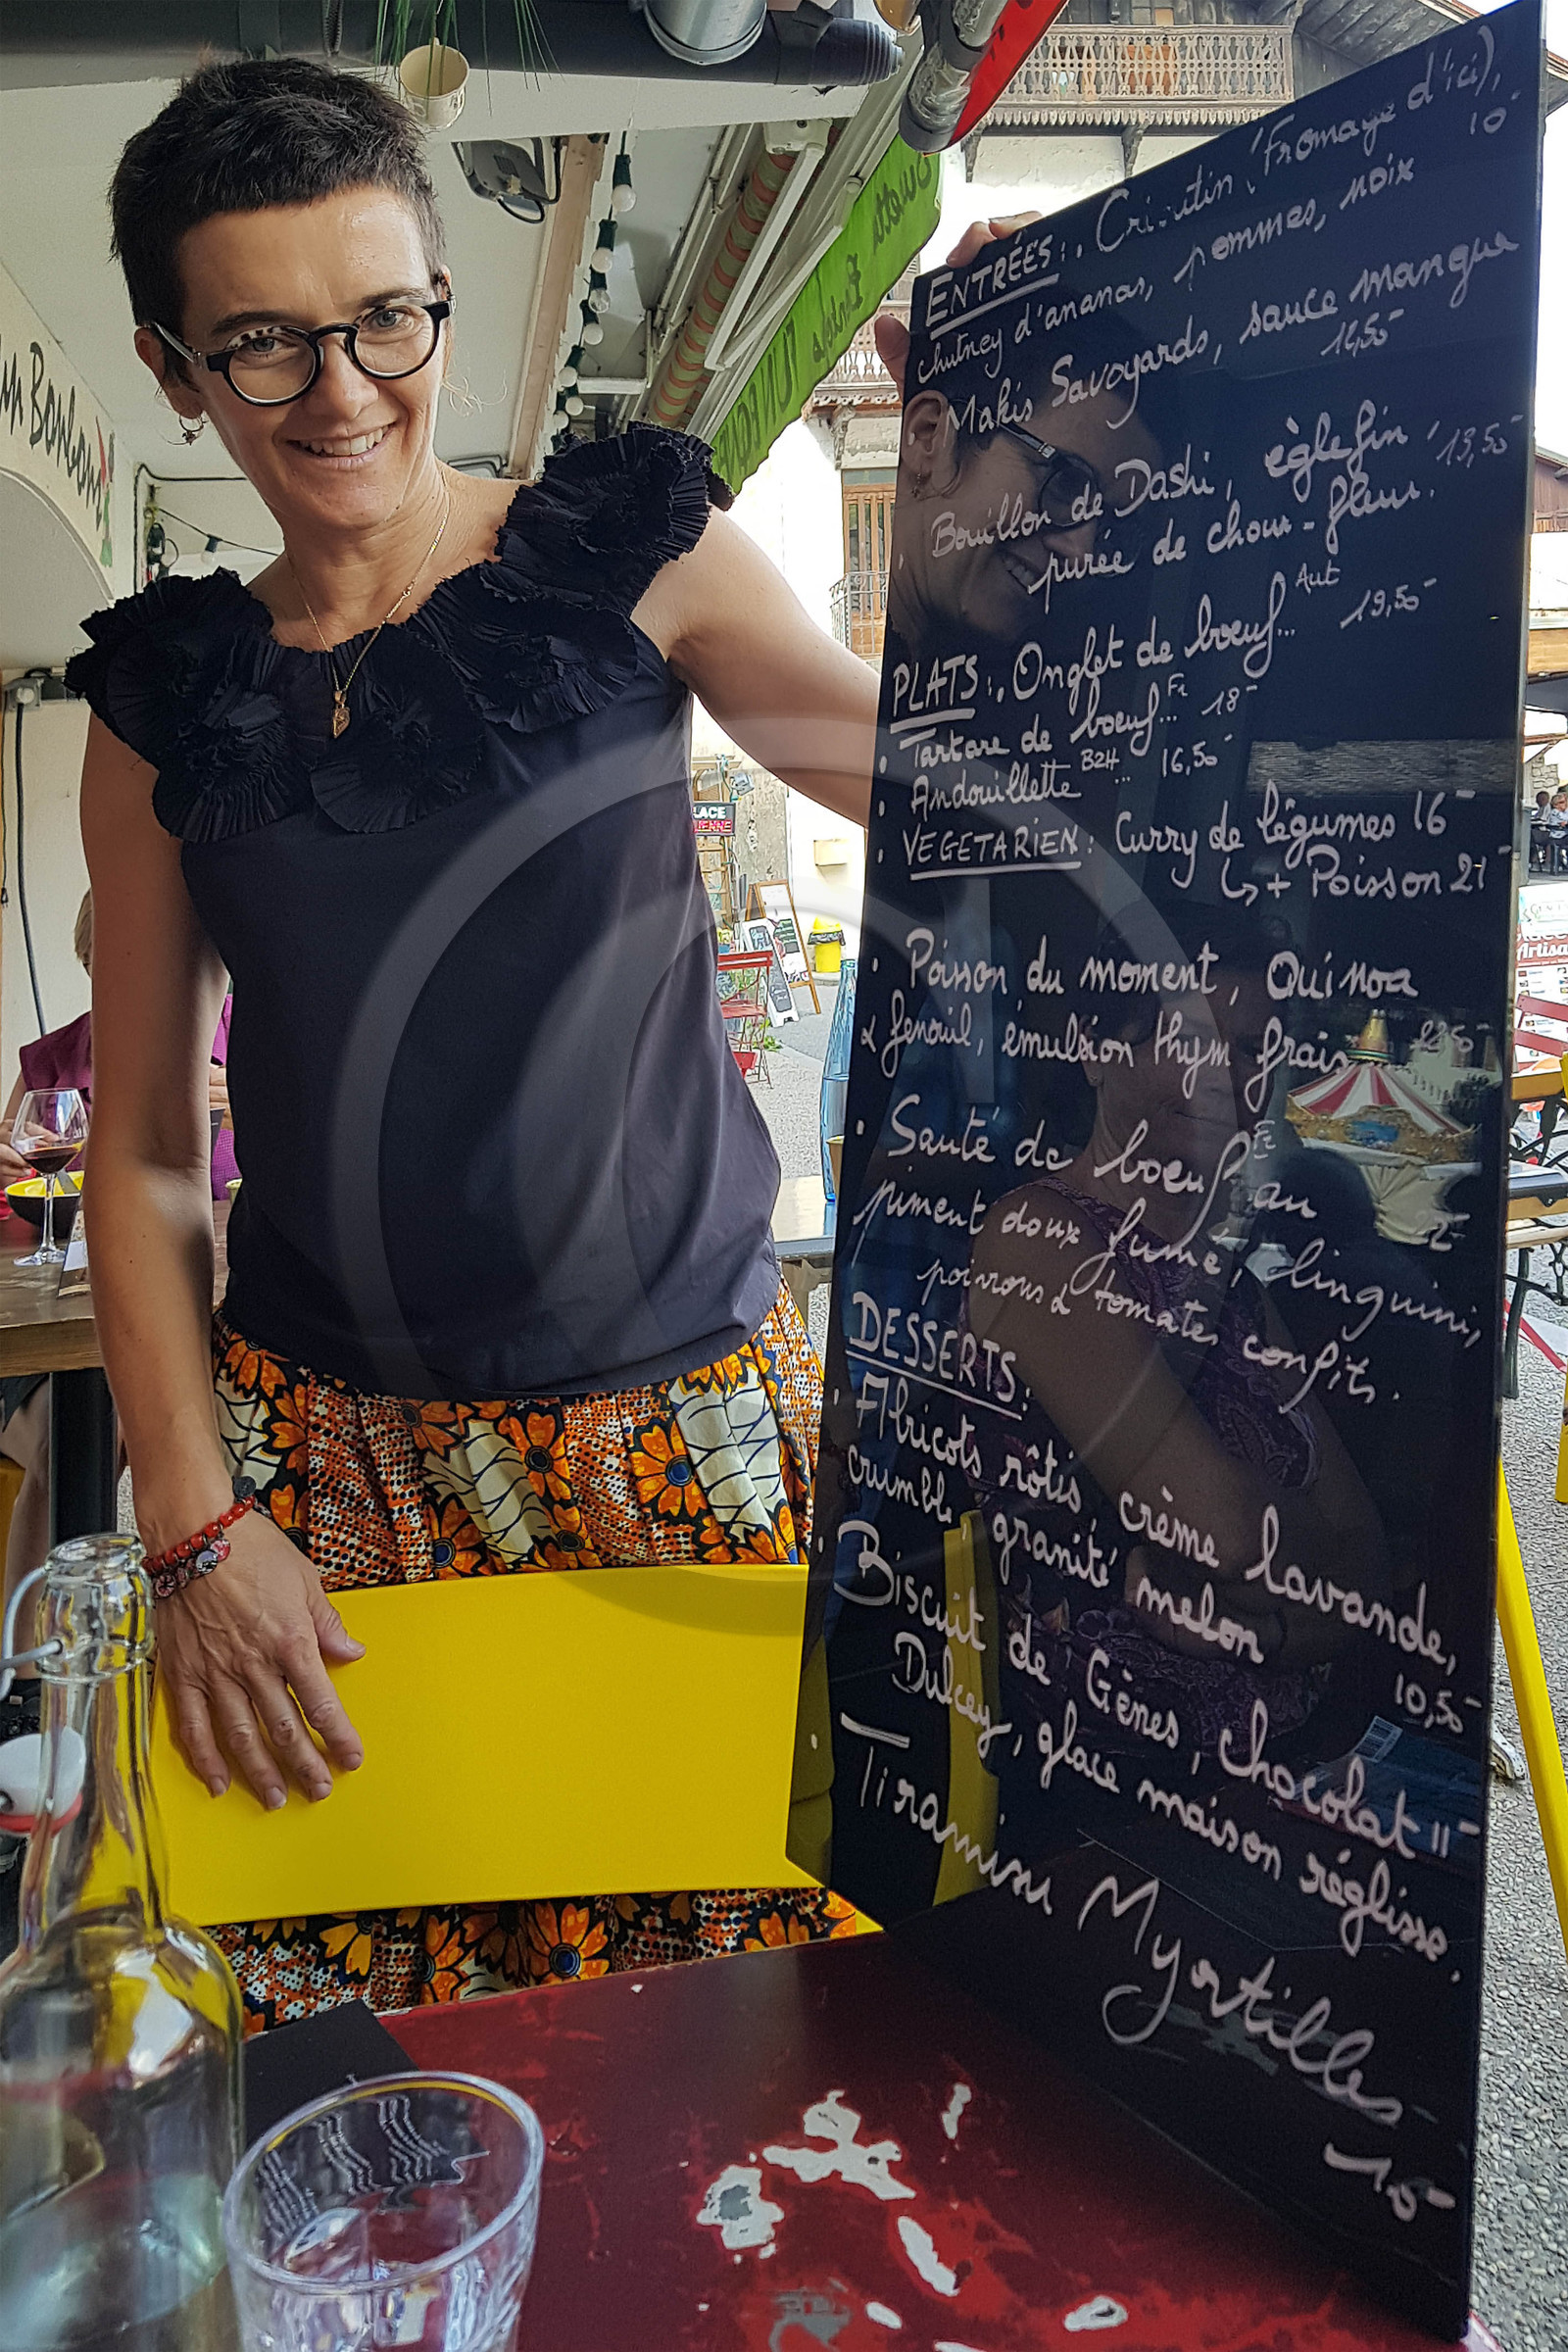 ENTRÉES: . (Fromage d'ici),
chutney d'ananas, pommes, noix 10-
. Makis Savoyards, sauce mangue
. Bouillon de Dashi, èglefin 13,50-
purée de chou-fleur.
PLATS: . Onglet de boeuf... Aut 19,50-
. Tartare de boeuf... Fr 18-
. Andouillette B2H ... 16,50-
. VEGETARIEN: Curry de légumes 16-
↳ + Poisson 21-
. Poisson du moment, Quinoa
& fenouil, émulsion thym frais
. Sauté de boeuf Fr au
piment doux fumé, linguini,
poivrons & tomates confits.
DESSERTS:
. Abricots rôtis, crème lavande,
crumble, granité melon 10,50-
. Biscuit de Gènes, chocolat 11-
Dulcey, glace maison réglisse.
. Tiramisu Myrtilles-
10-
un Bonbon
LACE
Artisa